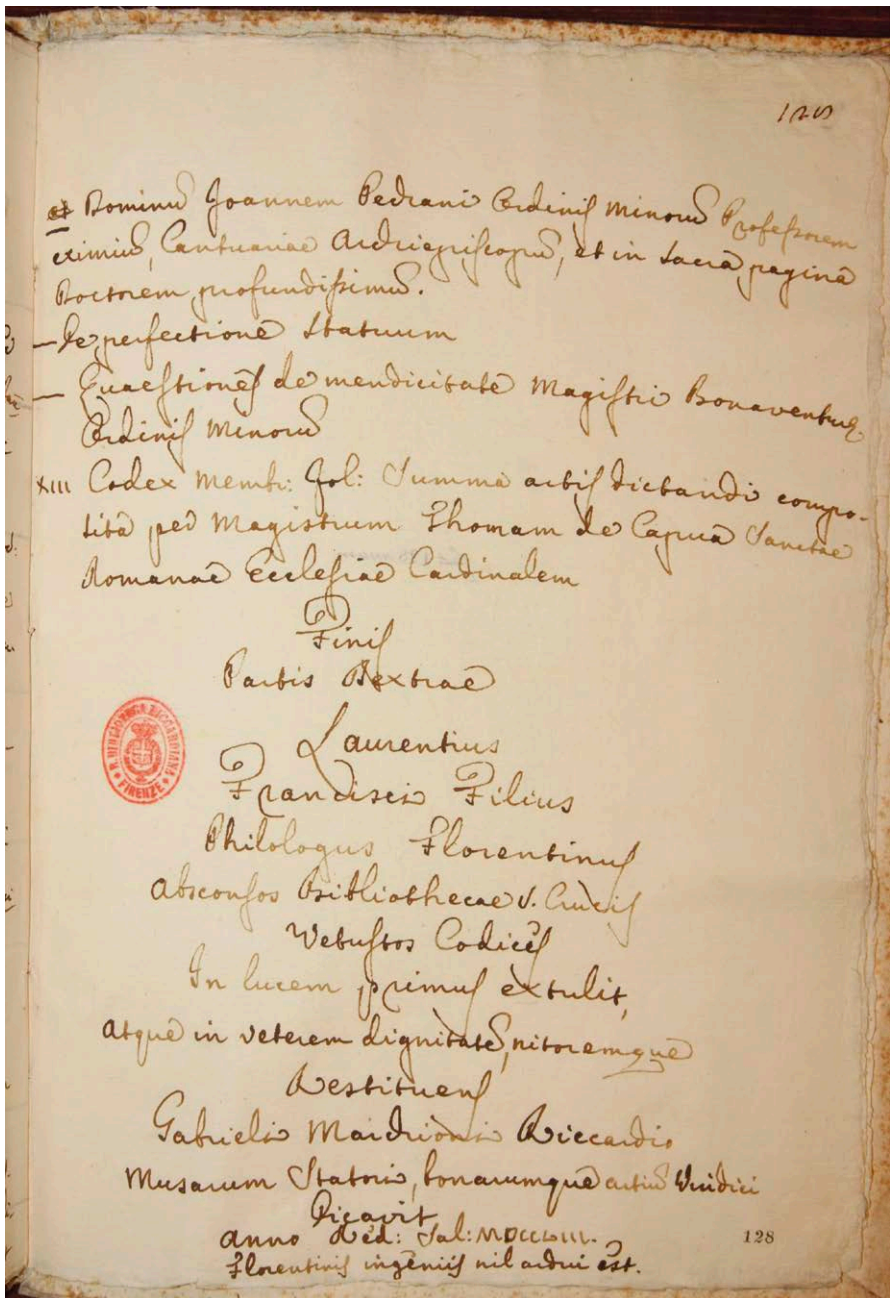 128
et Dominū Joannem Pechani Ordinis Minorū Professorem
eximiū, Cantuariae Archiepiscopū, et in sacrā paginā
Doctorem profundissimū.
— De perfectione statuum
— Quaestiones de mendicitate Magistri Bonaventurę
Ordinis Minorū
XIII Codex membr: fol: Summa artis dictandi compo-
sita per Magistrum Thomam de Capua Sanctae
Romanae Ecclesiae Cardinalem
Finis
Partis Dextrae
Laurentius
Francisci Filius
Philologus Florentinus
Absconsos Bibliothecae S. Crucis
Vetustos Codices
In lucem primus extulit,
atque in veterem dignitatē, nitoremque
Restituens
Gabrieli Marchioni Riccardio
Musarum Statori, bonarumque artiū Vindici
Dicavit
anno Red: Sal: MDCCLIII.
Florentinis ingeniis nil ardui est.
128
R. BIBLIOTECA RICCARDIANA
FIRENZE